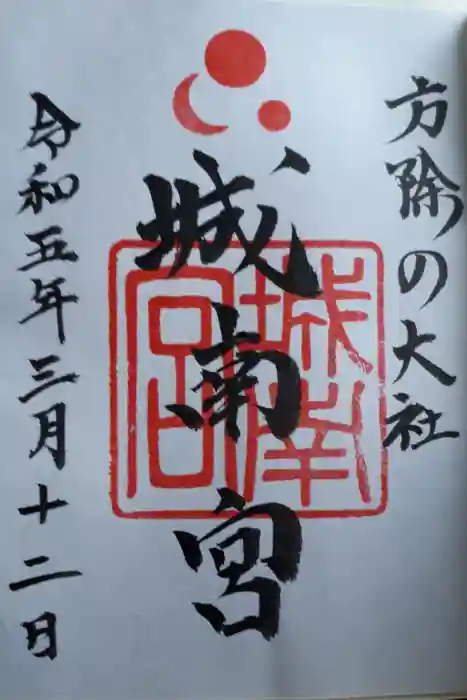 方除の大社
城南宮
城南宮
令和五年三月十二日